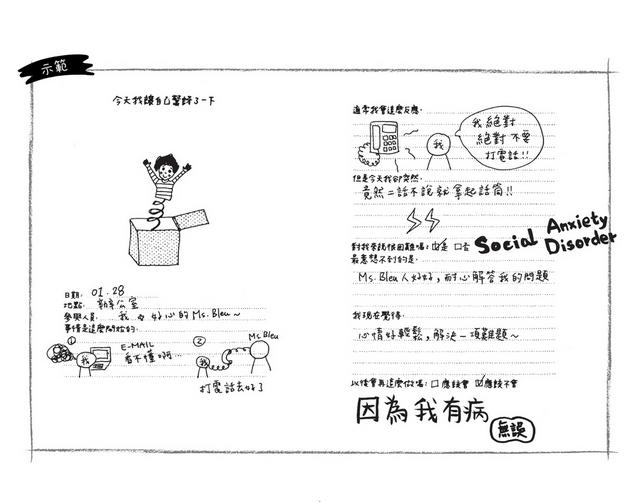 示範
今天我讓自己驚訝了一下
日期: 01.28
地點: 辦公室
參與人員: 我 & 好心的 Ms. Bleu~
事情是這麼開始的.
①
我
E-MAIL
看不懂啊…
②
我
Ms. Bleu
打電話去好了
通常我會這麼反應.
我
我絕對
絕對不要
打電話!!
但是今天我卻突然.
竟然二話不說就拿起話筒!!
對我來說很困難嗎: 是 否
Social Anxiety
Disorder
最意想不到的是.
Ms. Bleu人好好, 耐心解答我的問題
我現在覺得.
心情好輕鬆, 解決一項難題~
以後會再這麼做嗎: 應該會 應該不會
因為我有病
無誤